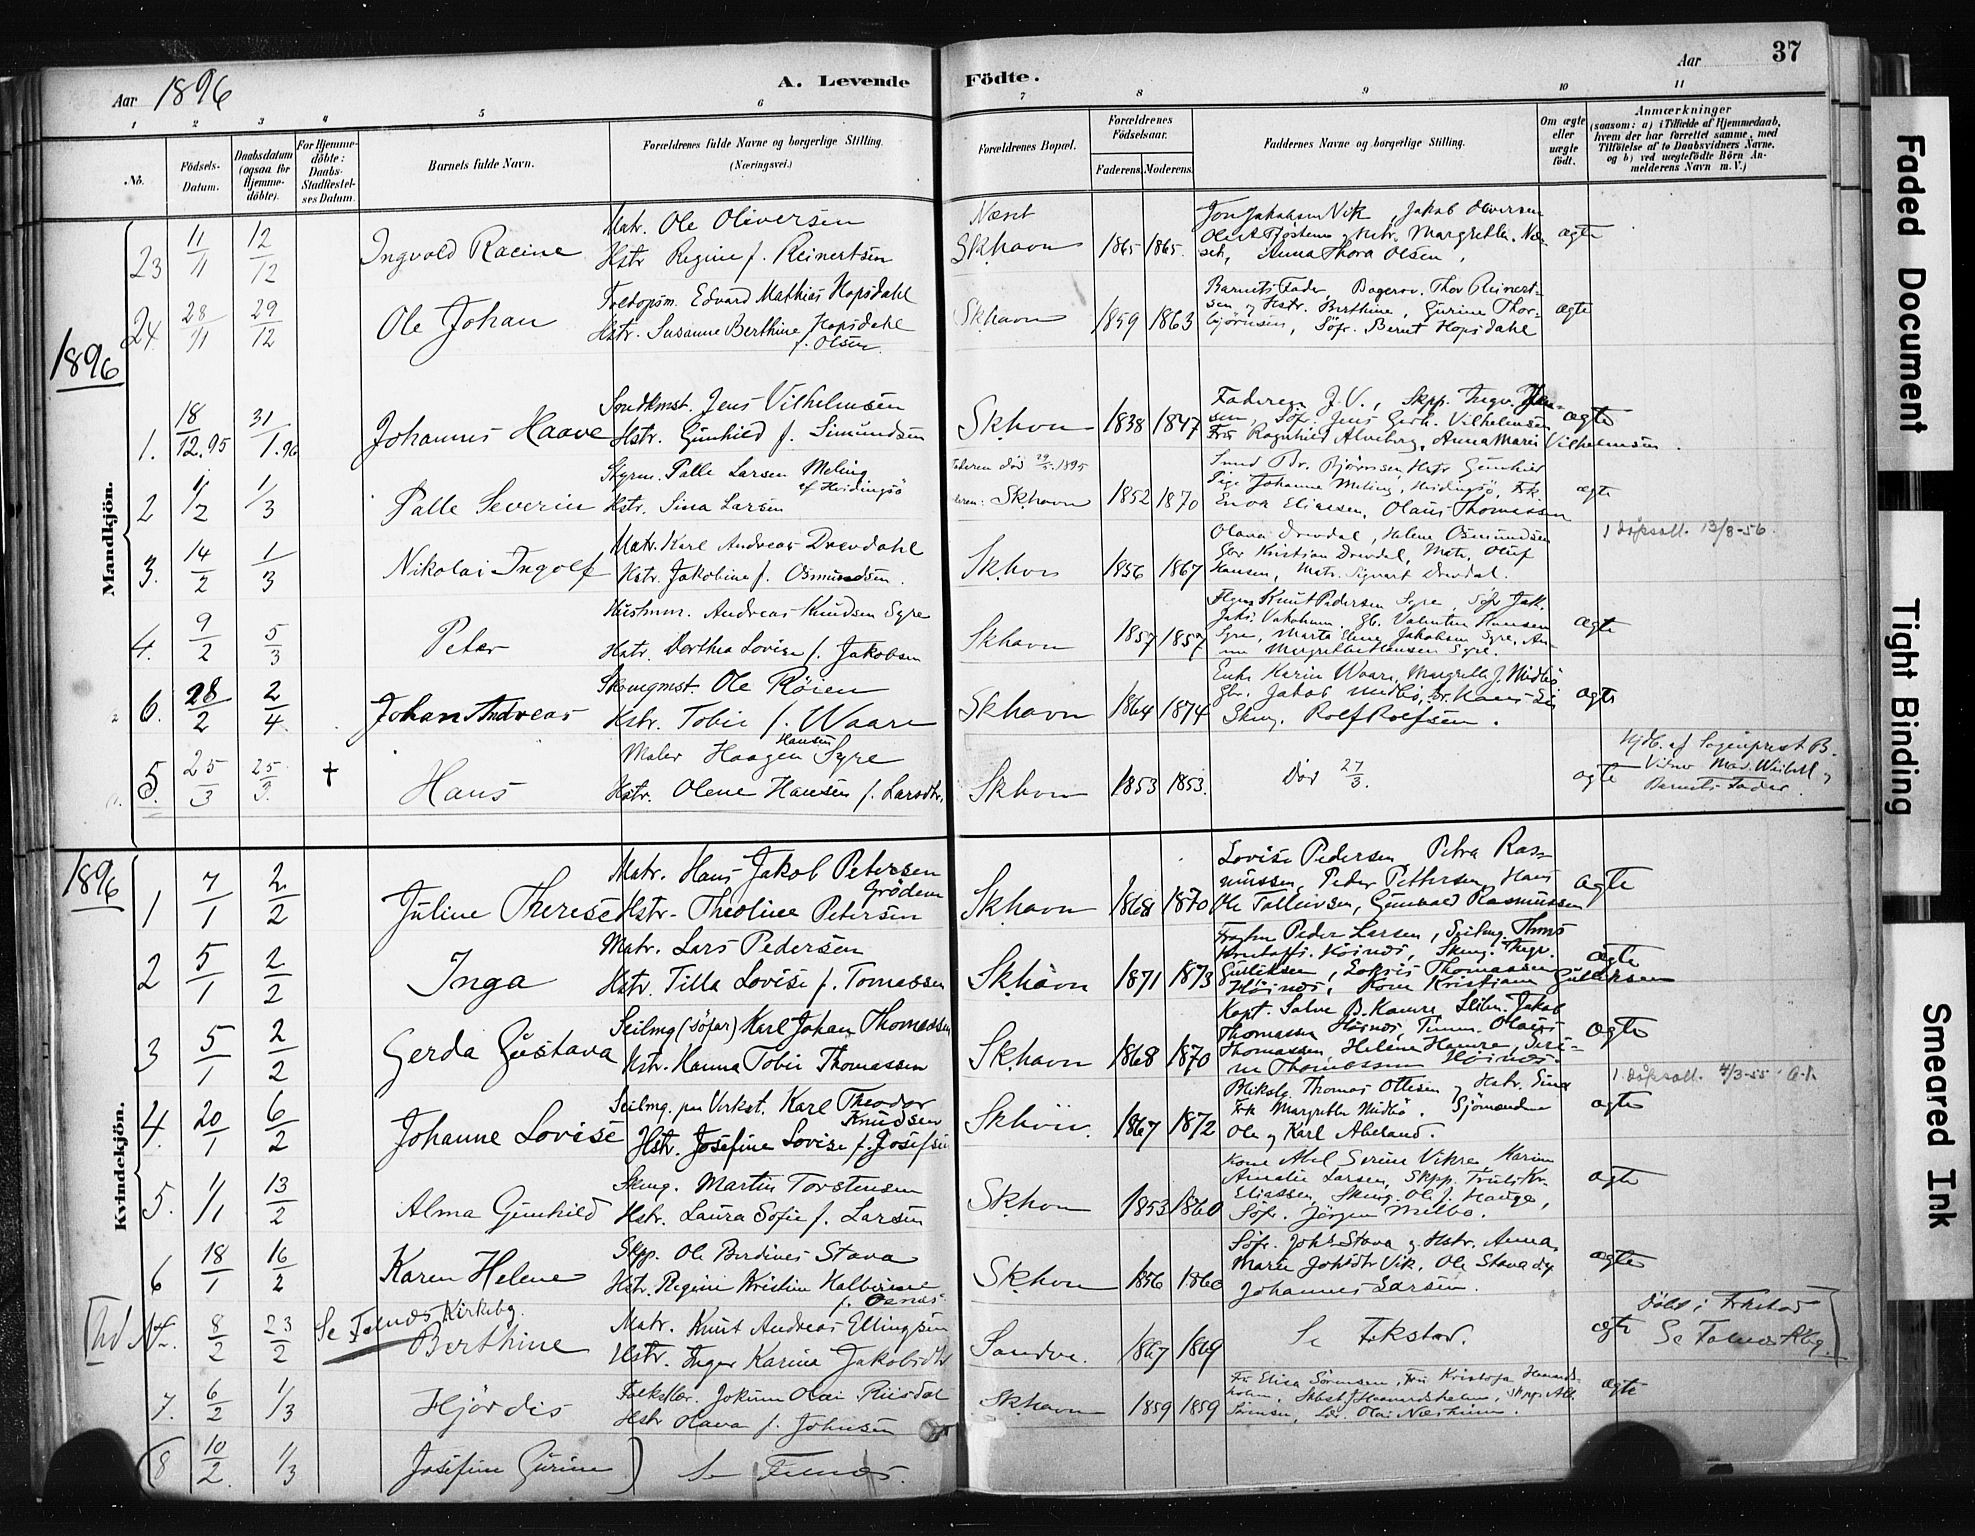 37
Aar 1896
A. Levende Födte.
Aar
1 2 3 4 5 6 7 8 9 10 11
No.
Födsels-Datum.
Daabsdatum (ogsaa for Hjemme-döbte).
For Hjemme-döbte: Daabs-Stadfæstel-ses Datum.
Barnets fulde Navn.
Forældrenes fulde Navne og borgerlige Stilling.
(Næringsvei.)
Forældrenes Bopæl.
Forældrenes Födselsaar.
Faderens. Moderens.
Faddernes Navne og borgerlige Stilling.
Om ægte eller uægte födt.
Anmærkninger
(saasom: a) i Tilfælde af Hjemmedaab, hvem der har forrettet samme, med Tilföielse af to Daabsvidners Navne. og b) ved uægtefödte Börn An-melderens Navn m. V.)
Mandkjön.
23 11/11 12/12 Ingvald Racine
Matr. Ole Oliversen
Hstr Regine f. Reinertsen
Næset
Skhavn 1865 1865.
Jakob Oliversen
Anna Thora Olsen
ægte
24. 28/11 29/12 Ole Johan
Toldopsm. Edvard Mathias Hopsdahl
Hstr. Susanne Berthine Hopsdahl
f. Olsen.
Skhavn 1859 1863
Barnets Fader, Thor Reinert-
sen og Hstr. Berthine, Gurine Thor-
björnsen, Söfr. Bernt Hopsdahl
ægte
1896
1. 18/12.95 31/1.96 Johannes Haave
Jens Vilhelmsen
Hstr. Gunhild f. Simundsen
Skhavn 1838 1847
Faderen J.V., Skpp. Ingv. Jen-
sen, Söfr. Jens Gerh. Vilhelmsen
Frk Ragnhild Alveberg, Anna Marie Vilhelmsen.
ægte
2 1/2 1/3 Palle Severin
Styrm. Palle Larsen Meling
af Hvidingsö
Hstr. Sina Larsen
Faderen död 29/5 1895
Skhavn 1852 1870
Johanne Meling, Hvidingsö, Frk.
Enva Eliasen, Olaus Thomassen
ægte
3. 14/2 1/3 Nikolai Ingolf
Matr. Karl Andreas Drevdahl
Hstr. Jakobine f. Osmundsen.
Skhavn 1856 1867
Olava Drevdal, Helene Osmundsen
Gbr Kristian Drevdal, Matr. Oluf
Hansen, Matr. Sigvart Drevdal.
1 döpsatt. 13/8-56.
4. 9/2 5/3 Peter
Husmm. Andreas Knudsen Syre
Hstr. Dorthea Lovise f. Jakobsen
Skhavn 1857 1857
Knut Pedersen Syre, Söfr Jak.
Valentin Hansen
Syre, Marta Elene Jakobsen Syre, An-
na Margrethe Hansen Syre.
ægte
6. 28/2 2/4. Johan Andreas
Skomgmst. Ole Röien
Hstr. Tobie f. Waare
Skhavn 1864 1874
Enke Karin Waare, Margrethe J. Midbö
Gbr. Jakob Midbö, Hans
Skmg. Rolf Rolfsen.
ægte
5. 25/3 25/3. † Hans
Maler Haagen Hansen Syre
Hstr. Olene Hansen f. Larsdtr.
Skhavn 1853 1853.
Död 27/3.
ægte
Hjdb. af Sogneprest B.
Vidner Mad. og
Barnets Fader.
1896
Kvindekjön.
1 7/1 2/2 Juline Therese
Matr. Hans Jakob Petersen
Grödem
Hstr. Theoline Petersen
Skhavn 1868 1870
Lovise Pedersen, Petra Ras-
mussen, Peder Pettersen, Hans
Ole Tolleivsen, Gunvald Rasmussen
ægte
2 5/1 2/2 Inga
Matr. Lars Pedersen
Hstr. Tilla Lovise f. Tomassen
Skhavn 1871 1873
Peder Larsen, Seilmg. Thms
Höinæs, Skmg. Ingv.
Gulliksen, Thomassen
Höinæs, Kone Kristiane Gulliksen
ægte
3 5/1 2/2 Gerda Gustava
Seilmg (söfar) Karl Johan Thomassen
Hstr. Hanna Tobie Thomassen
Skhavn 1868 1870
Kapt. Salve B. Hamre, Jakob
Thomassen Höinæs, Timm. Olaus
Thomassen, Helene Hamre, Seri-
ne Thomassen Höinæs.
ægte
1 döpsatt. 4/3-55
4. 20/1 6/2 Johanne Lovise
Seilmg. Karl Theodor
Knudsen
Hstr. Josefine Lovise f. Josefsen
Skhavn. 1867 1872
Thomas Ottesen og Hstr. Eina
Frk Margrethe Midbö. Sjömændene
Ole og Karl Abeland.
ægte
5. 1/1 13/2 Alma Gunhild
Skmg. Martin Torstensen
Hstr. Laura Sofie f. Larsen
Skhavn 1853 1860
Kone Abel Serine Vikre Karin
Amalie Larsen, Skpp. Truls Kr.
Eliassen, Skmg. Ole J. Hauge,
Söfr. Jörgen Melbo.
ægte
6 18/1 16/2 Karen Helene
Skpp. Ole Berdines Stava
Hstr. Regine Kristine Halvorine
Skhavn 1856 1860
Söfr. Johs Stava og Hstr. Anna,
Marie Johsdtr Vik, Ole Stava og
Johannes Larsen.
ægte
8/2 23/2 Se Falnæs Kirkebg.
Berthine
Matr. Knut Andreas Ellingsen
Hstr. Inger Karina Jakobsdtr
Sandve. 1867 1869
Se Tekstav.
ægte
Döbt i
Se Falnæs Kbg.
7. 6/2 1/3 Hjördis
Jokum Olai Riisdal
Hstr Olava f. Johnsen
Skhavn 1859 1859
Fr Elisa Sörensen, Kristofa
Sörensen, Olai
ægte
(8 10/2 1/3 Josefine Gurine) Se Falnæs.
Faded Document
Tight Binding
Smeared Ink